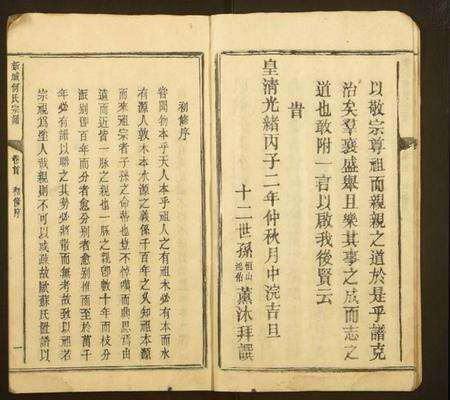 以敬宗尊祖而親親之道於是乎諸克
治矣羣襄盛舉且樂其事之成而志之
道也敢附一言以啟我後賢云
皇清光緒丙子二年仲秋月中浣吉旦
十二世孫 薰沐拜譔
初修序
嘗聞物本乎天人本乎祖人之有祖木必有本而水
有源人敦木本水源之義係千百年之久知祖本源
而來祖宗者子孫之命
遠而近皆一脉之親也一脉之親即數十年而枝分
派別即百年而分者愈分別者愈別推而至於萬千
年必有譜以聯之其勢必將散而無考故敦以祖名
宗規爲生人哉親則不可以或疏故歐蘇氏置譜以
新城何氏宗譜
卷首
初修序
一